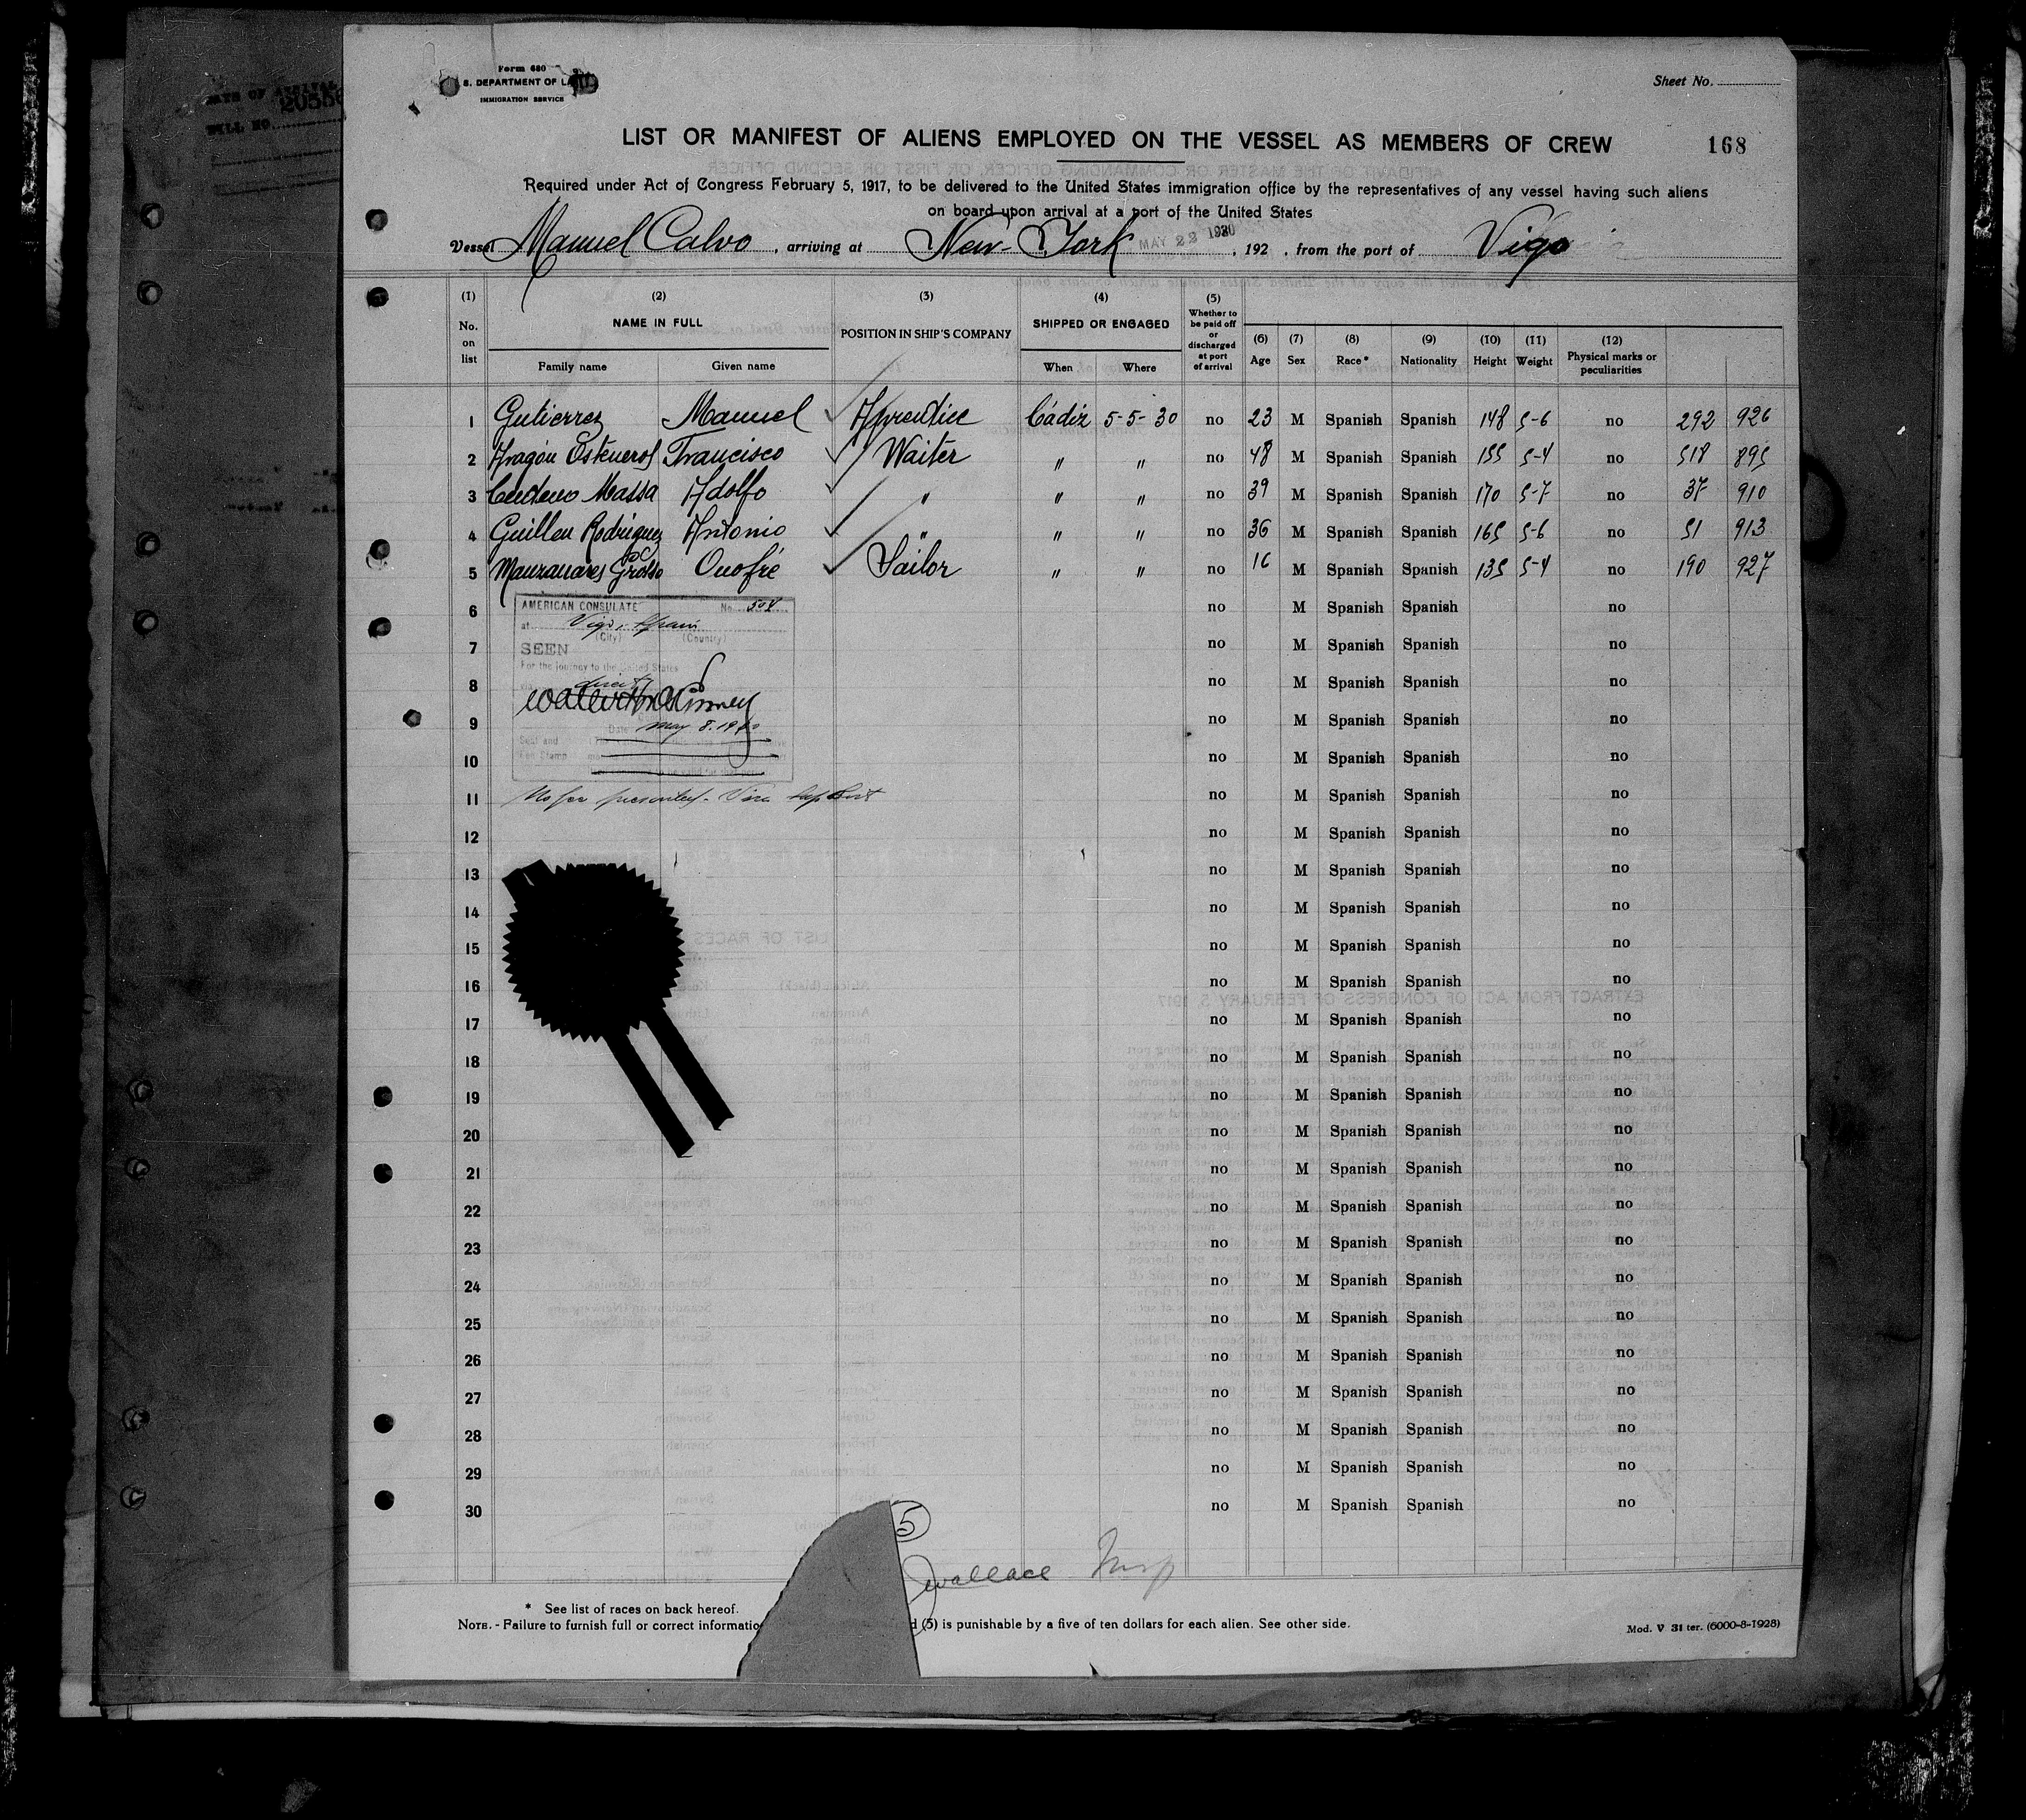 Form 680
S. DEPARTMENT OF LA
IMMIGRATION SERVICE
Sheet No.
LIST OR MANIFEST OF ALIENS EMPLOYED ON THE VESSEL AS MEMBERS OF CREW
168
Required under Act of Congress February 5, 1917, to be delivered to the United States immigration office by the representatives of any vessel having such aliens
on board upon arrival at a port of the United States
Vessel Manuel Calvo , arriving at New-York MAY 22 1930 , 192 , from the port of Vigo
(1) (2) (3) (4) (5) (6) (7) (8) (9) (10) (11) (12)
No. on list NAME IN FULL POSITION IN SHIP'S COMPANY SHIPPED OR ENGAGED Whether to be paid off or discharged at port of arrival Age Sex Race* Nationality Height Weight Physical marks or peculiarities
Family name Given name When Where
1 Gutierrez Manuel Aprentice Cádiz 5-5-30 no 23 M Spanish Spanish 148 5-6 no 292 926
2 Aragón Osteneros Francisco Waiter " " no 48 M Spanish Spanish 155 5-4 no 518 895
3 Massa Adolfo " " " no 39 M Spanish Spanish 170 5-7 no 37 910
4 Guillen Rodriguez Antonio " " " no 36 M Spanish Spanish 165 5-6 no 51 913
5 Manzanares Grosso Onofre Sailor " " no 16 M Spanish Spanish 135 5-4 no 190 927
6 no M Spanish Spanish no
7 no M Spanish Spanish no
8 no M Spanish Spanish no
9 no M Spanish Spanish no
10 no M Spanish Spanish no
11 no M Spanish Spanish no
12 no M Spanish Spanish no
13 no M Spanish Spanish no
14 no M Spanish Spanish no
15 no M Spanish Spanish no
16 no M Spanish Spanish no
17 no M Spanish Spanish no
18 no M Spanish Spanish no
19 no M Spanish Spanish no
20 no M Spanish Spanish no
21 no M Spanish Spanish no
22 no M Spanish Spanish no
23 no M Spanish Spanish no
24 no M Spanish Spanish no
25 no M Spanish Spanish no
26 no M Spanish Spanish no
27 no M Spanish Spanish no
28 no M Spanish Spanish no
29 no M Spanish Spanish no
30 no M Spanish Spanish no
AMERICAN CONSULATE No. 508
at Vigo, Spain
(City) (Country)
SEEN
For the journey to the United States
direct
Date May 8. 1930
Seal and
Fee Stamp
No fee presented - Visa
5
Wallace Insp
* See list of races on back hereof.
NOTE. - Failure to furnish full or correct informatio d (5) is punishable by a five of ten dollars for each alien. See other side.
Mod. V 31 ter. (6000-8-1928)